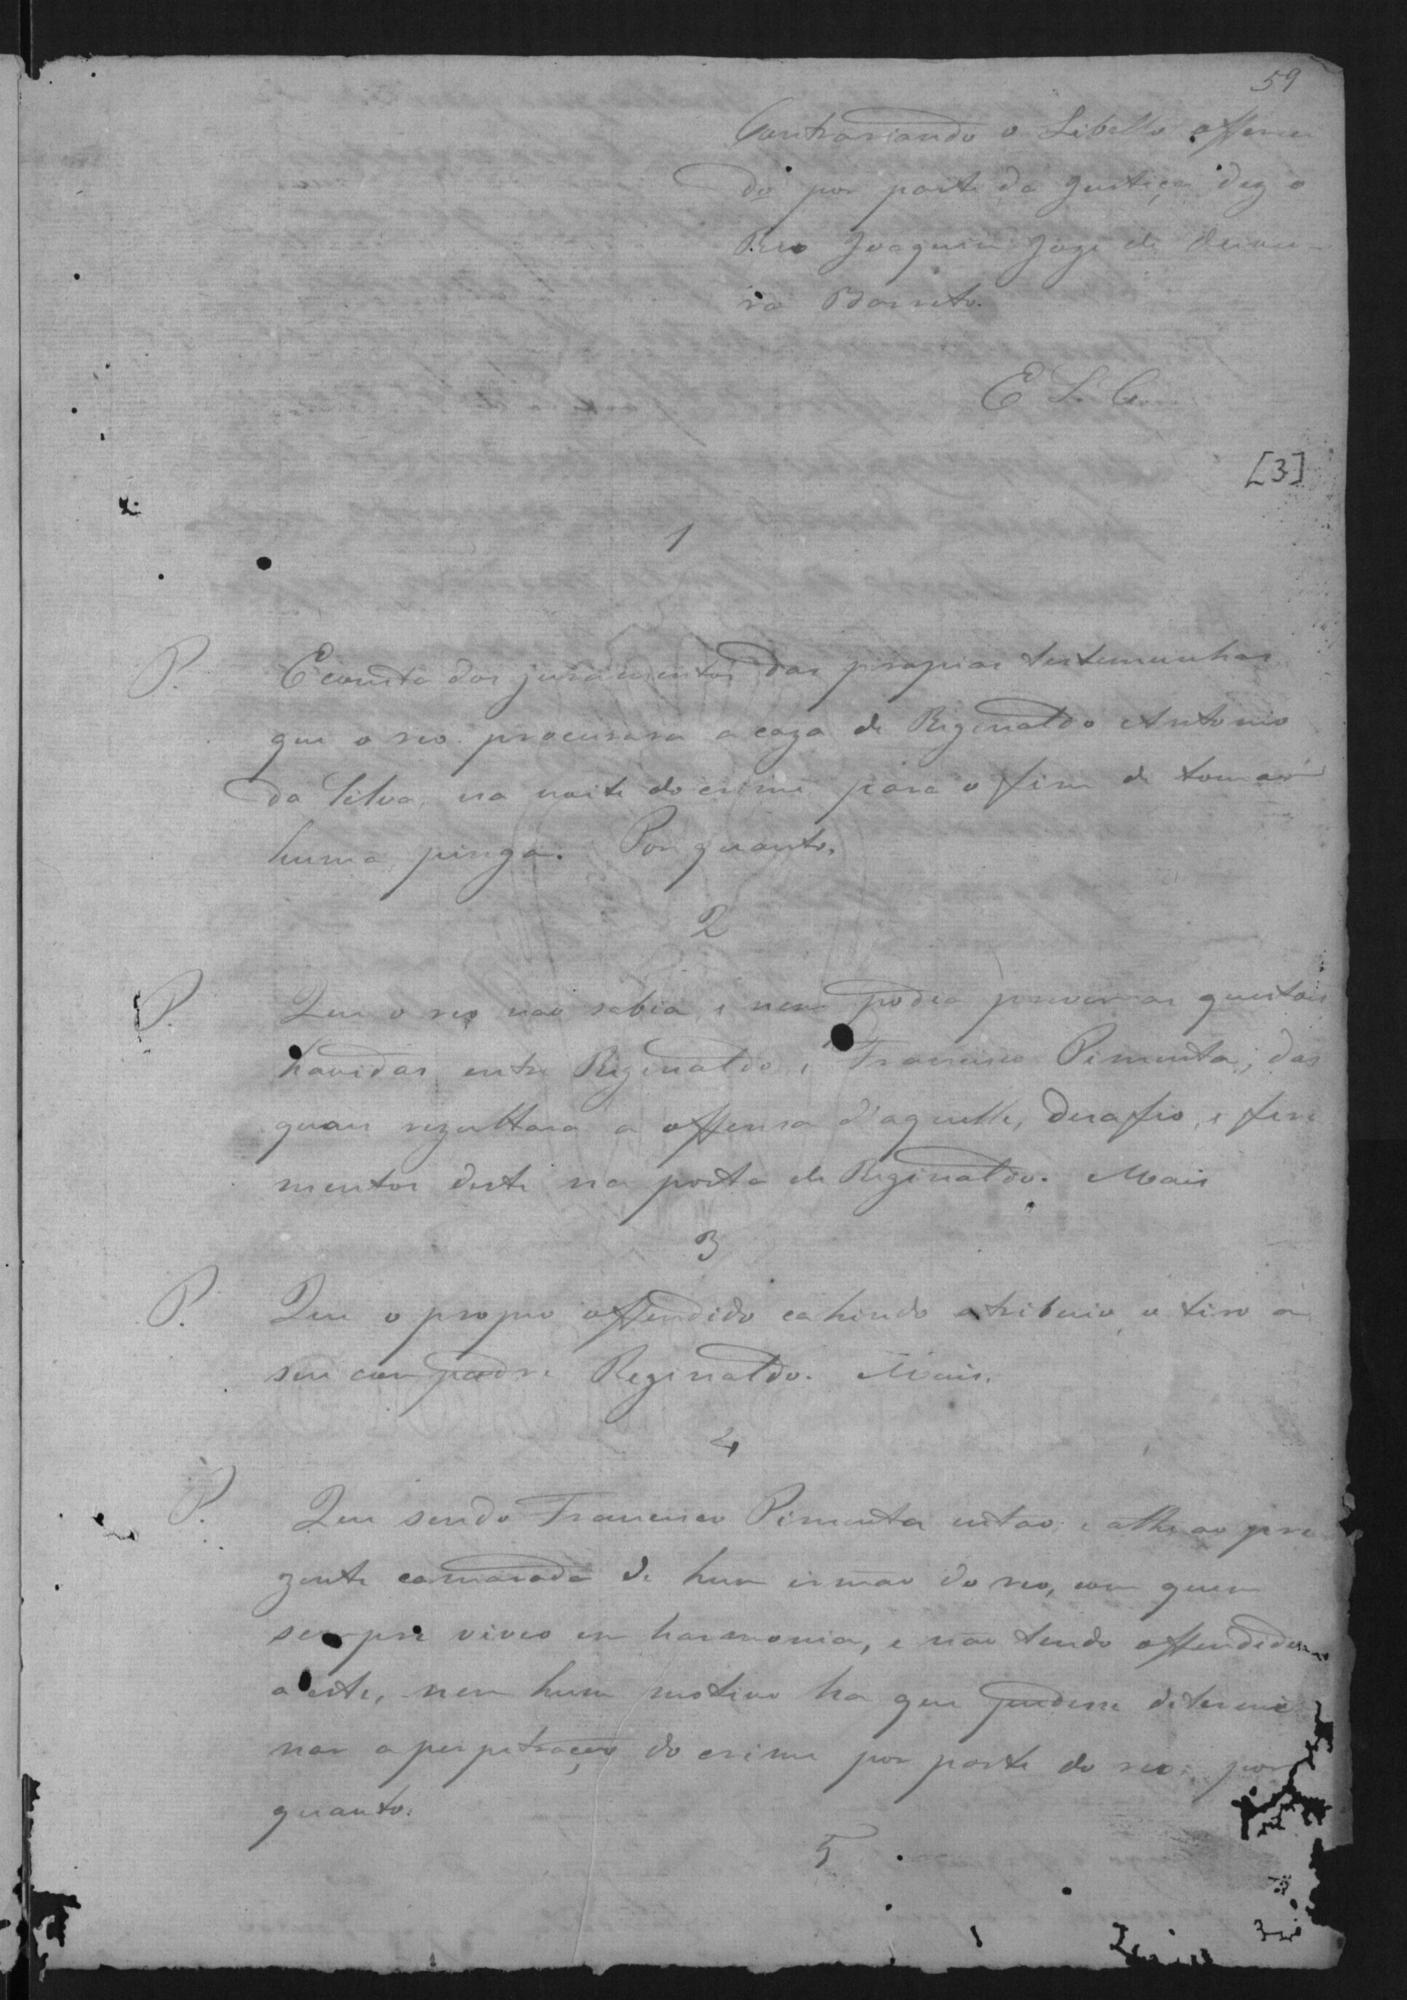 59
Contrariando o Libello offereci
do por parte da Justiça diz o
Reo Joaquim Joze de
ra Barreto.
E S. C
[3]
1
P. E consta dos juramentos das propias testemunhas
que o reo procurara a caza de Riginaldo Antonio
da Silva, na noite do crime para o fim de tomar
huma pinga. Porquanto,
2
P. Que o reo nao sabia, e nem podia prevenir questois
havidas entre Riginaldo, e Francisco Pimenta, das
quais rezultara a offensa d'aquelle, desafio, e feri
mentos deste na porta de Riginaldo. Mais
3
P. Que o propio offendido cahindo atribuio o tiro a
seu compadre Reginaldo. Mais.
4
P. Que sendo Francisco Pimenta entao, e athe ao pre
zente camarada de hum irmao do reo, com quem
sempre viveo em harmonia, e nao tendo offendido
a este, nem hum motivo ha que pudesse determi
nar a perpetraçao do crime por parte do reo, por
quanto.
5